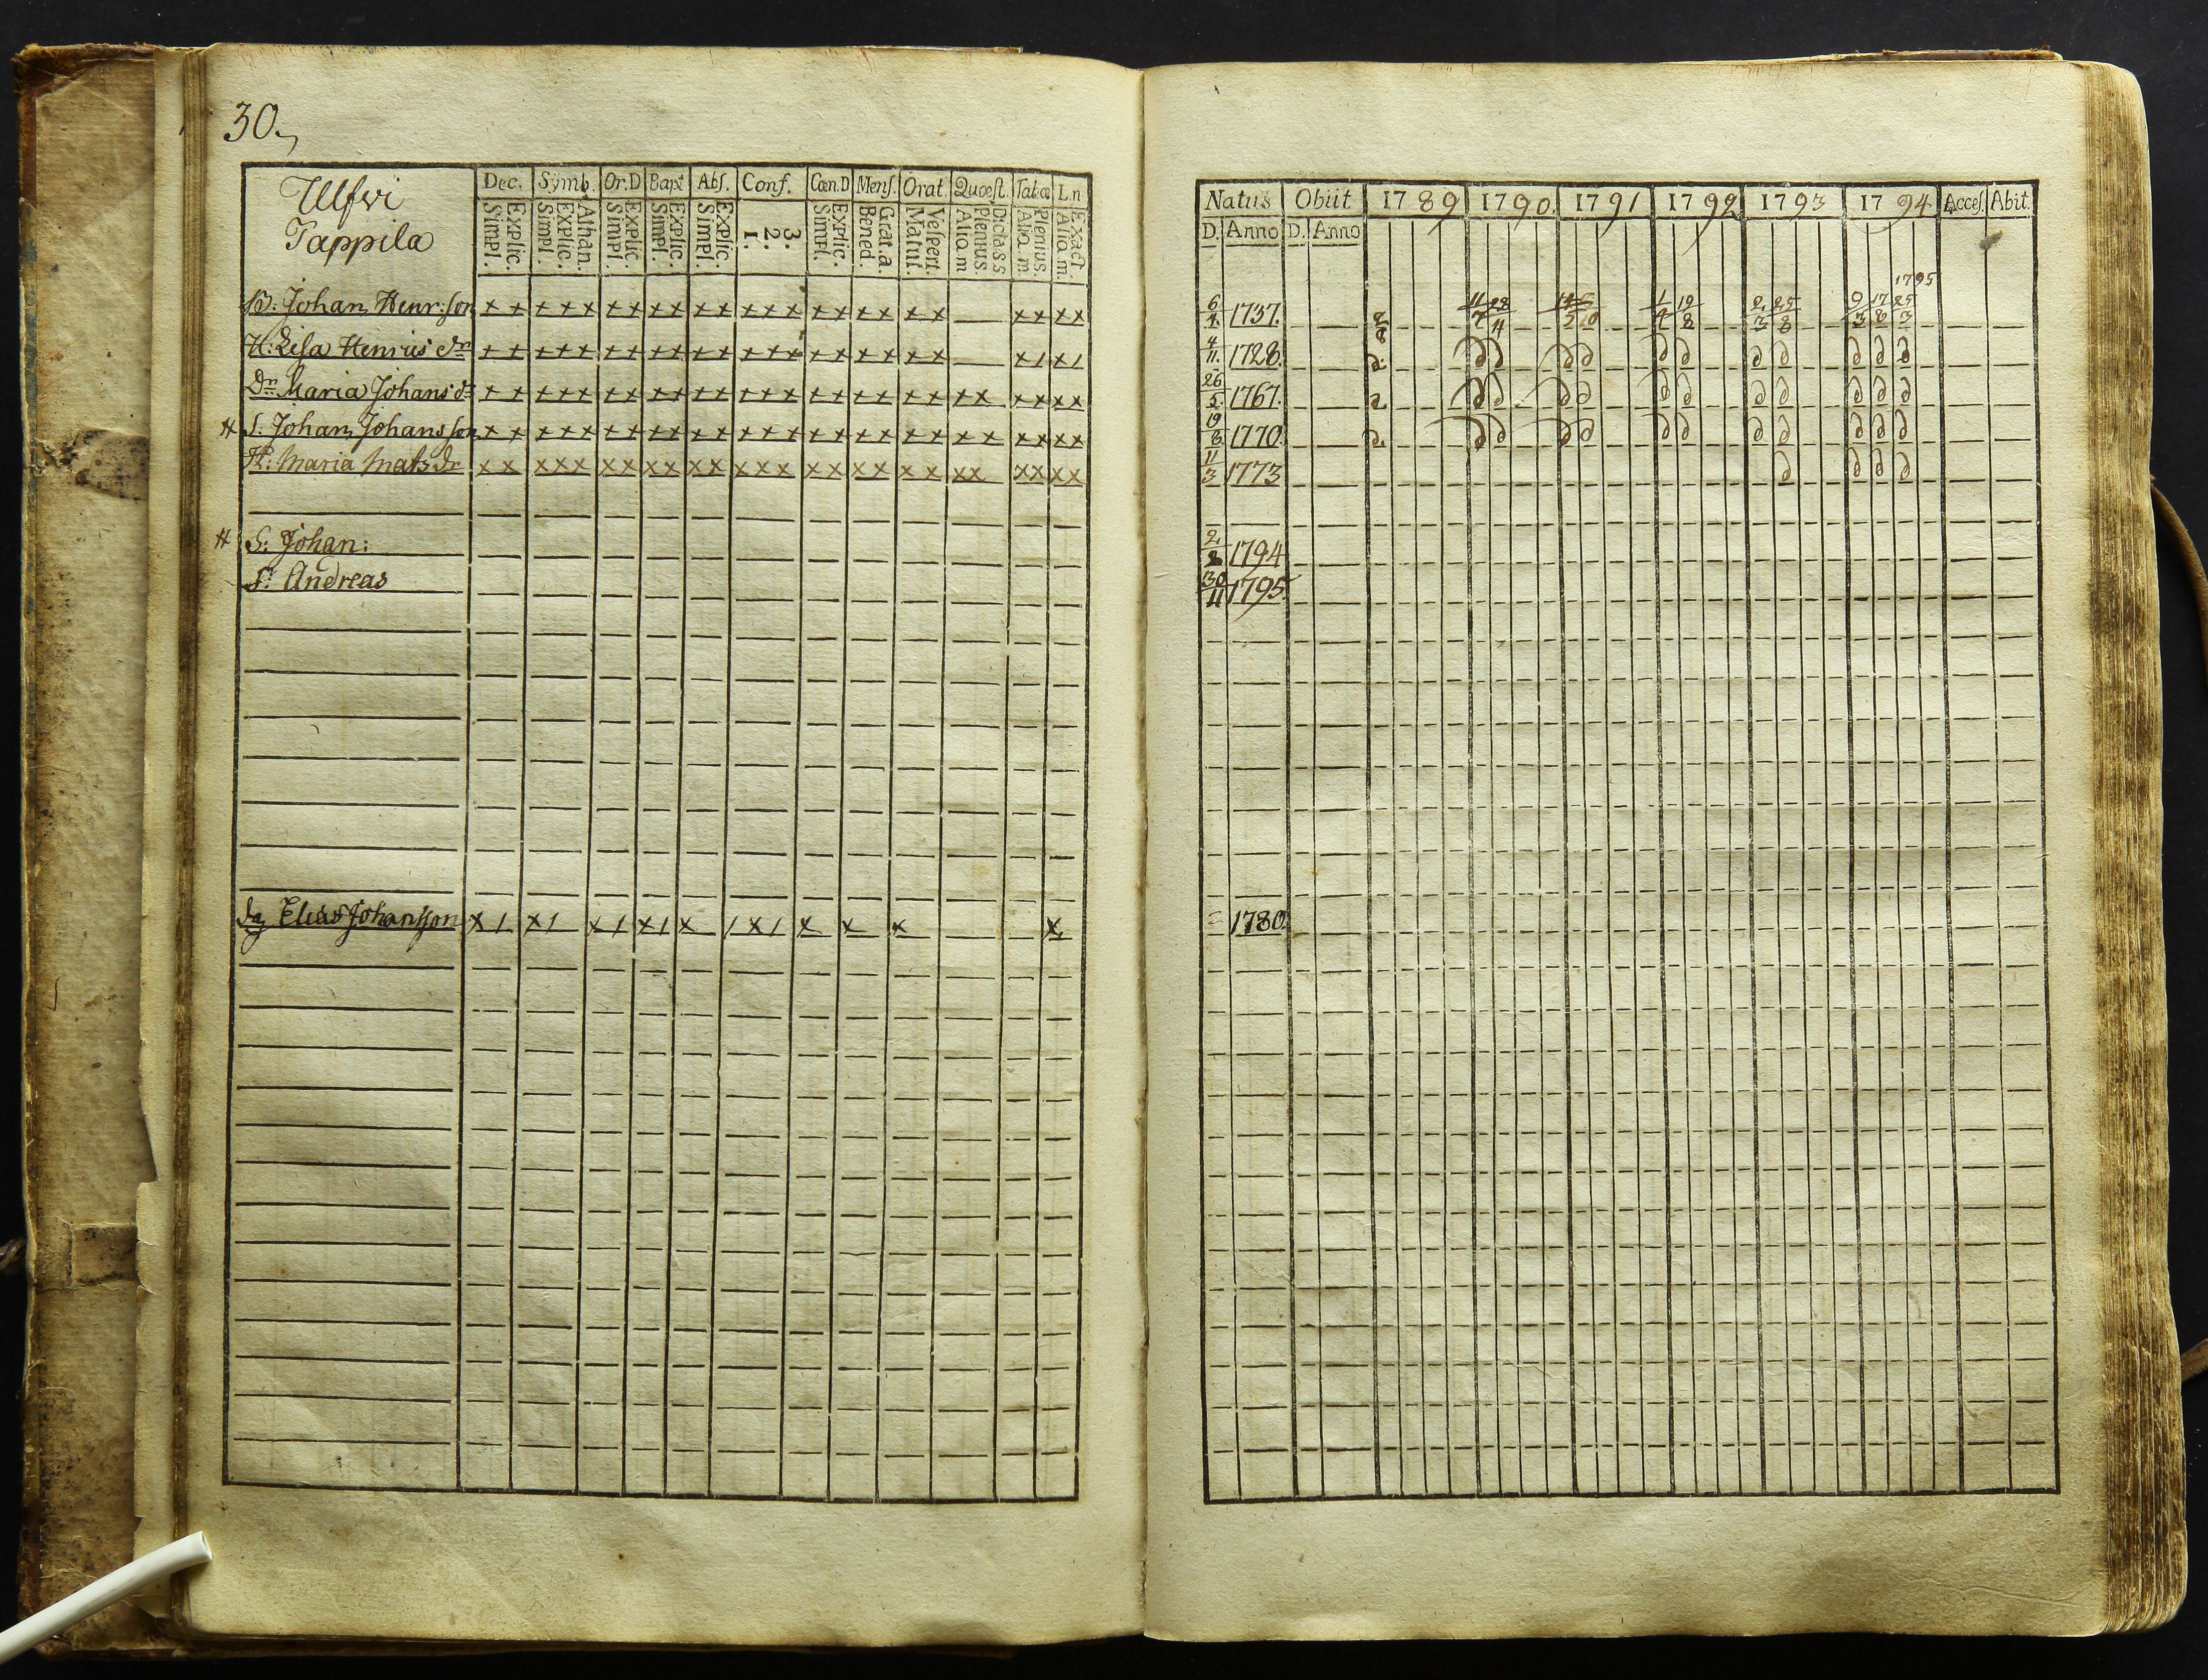 30.
Ullfvi
Tappila
Dec. Symb. Or.D Bapt Abs. Conf. Cœn.D Mens. Orat. Quœst. Tabœ L.n
Explic. Simpl. Athan. Explic. Simpl. Explic. Simpl. Explic. Simpl. Explic. Simpl. 3. 2. 1. Explic. Simpl. Grat.a. Bened. Vespert. Matut. Dict.a s.s Plenius. Aliq.m Plenius. Aliq.m. Exact. Aliq.m.
B: Johan Henr:son x x x x x x x x x x x x x x x x x x x x x x x x
H: Lisa Henrics dr x x x x x x x x x x x x x x x x x x x x x 1 x 1
Dr Maria Johans dr x x x x x x x x x x x x x x x x x x x x x x x x x x
# S: Johan Johansson x x x x x x x x x x x x x x x x x x x x x x x x x x
H: Maria Mats dr x x x x x x x x x x x x x x x x x x x x x x x x x x
# S: Johan:
S: Andreas
Elias Johansson x 1 x 1 x 1 x 1 x 1 x 1 x x x x
Natus Obiit 1789 1790. 1791 1792 1793 1794 Acces. Abit.
D. Anno D. Anno
1795
6/4 1737. 11 28 1 12 2/3 25/8 9/3 17/8 25/3
4/11. 1728.
26/5. 1767.
19/8 1770
11/3 1773
2/2 1794
30/11 1795.
1780.